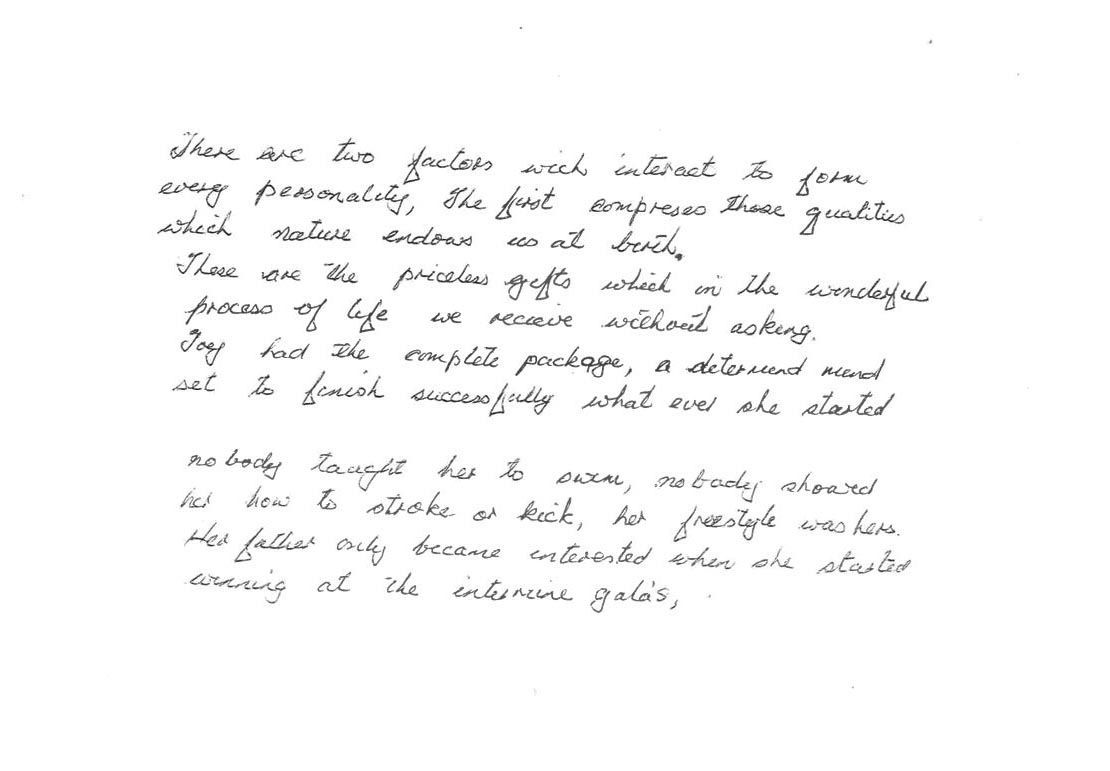 There are two factors wich interact to form
every personality, The first compreses those qualities
which nature endows us at birth.
These are the priceless gifts which in the wonderful
process of life we recieve without asking.
Joey had the complete package, a determind mind
set to finish successfully what ever she started
nobody taught her to swim, nobody showed
her how to stroke or kick, her freestyle was hers.
Her father only became interested when she started
winning at the intermine gala's,